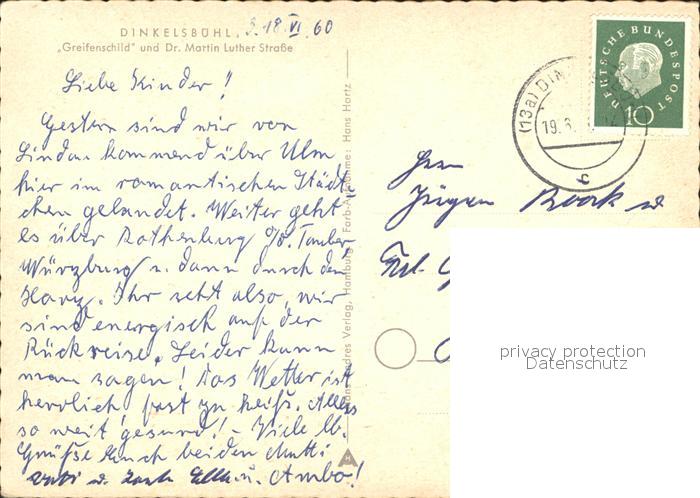 DINKELSBÜHL, 18.VI.60
„Greifenschild" und Dr. Martin Luther Straße
Liebe Kinder!
Gestern sind wir von
Lindau kommend über Ulm
hier im romantischen Städt-
chen gelandet. Weiter geht
es über Rothenburg o/d. Tauber,
Würzburg u. dann durch den
Harz. Ihr seht also, wir
sind energisch auf der
Rückreise. Leider kann
man sagen! Das Wetter ist
herrlich, fast zu heiß. Alles
so weit gesund! - Viele lb.
Grüße Euch beiden Mutti
Vati u. Ambo!
Hans Hartz
Farb-Aufnahme:
Verlag, Hamburg
DEUTSCHE BUNDESPOST
10
(13a) DIN
19.6.
c
Herrn
Jürgen u
privacy protection
Datenschutz